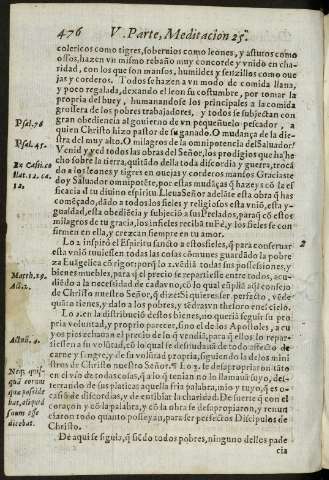 476 V. Parte, Meditacion 25.
colericos como tigres, soberuios como leones, y astutos como
ossos, hazen vn mismo rebaño muy concorde y vnido en cha-
ridad, con los que son mansos, humildes y senzillos como oue
jas y corderos. Todos se hazen a vn modo de comida llana,
y poco regalada, dexando el leon su costumbre, por tomar la
propria del buey, humanandose los principales a la comida
grossera de los pobres trabajadores, y todos se subjectan con
gran obediencia al gouierno de vn pequeñuelo pescador, a
quien Christo hizo pastor de su ganado. O mudança de la die-
stra del muy alto. O milagros de la omnipotencia del Saluador!
Venid y ved todos las obras del Señor, los prodigios que ha he
cho sobre la tierra, quitãdo della toda discordia y guerra, trocã
do a los leones y tigres en ouejas y corderos mansos Gracias te
doy Saluador omnipotẽte, por estas mudãças q̃ hazes cõ la ef
ficacia de tu diuino espiritu. Lleua Señor adelãte esta obra q̃ has
comẽçado, dãdo a todos los fieles y religiosos esta vniõ, esta y-
gualdad, esta obediẽcia y subjeciõ a sus Prelados, para q̃ cõ estos
milagros de tu gracia, los infieles recibã tu Fè, y los fieles se con-
firmen en ella, y crezcan siempre en tu amor.
Lo 2 inspirò el Espiritu sancto a estos fieles, q̃ para conseruar
esta vniõ tuuiessen todas las cosas cõmunes guardãdo la pobre
za Euãgelica cõ rigor, porq̃ lo 1. vẽdiã todas sus possessiones, y
bienes muebles, para q̃ el precio se repartiesse entre todos, acu-
diẽdo a la necessidad de cada vno, cõ lo qual cũpliã aquel consejo
de Christo nuestro Señor, q̃ dize: Si quieres ser perfecto, vẽde
quãto tienes, y dalo a los pobres, y tẽdras vn thesoro en el cielo.
Lo 2. en la distribuciõ destos bienes, no queriã seguir su pro
pria voluntad, y proprio parecer, sino el de los Apostoles, a cu
yos pies echauan el precio de lo q̃ vendiã, para q̃ ellos lo repar-
tiessen a su volũtad, cõ lo qual se desnudauã de todo affecto de
carne y sangre, y de su volũtad propria, siguiendo la de los mini
stros de Christo nuestro Señor. Lo 3. se desapropriaron tãto
en el vso de todas cosas, q̃ a lo q̃ tenian no lo llamauã suyo, des-
terrando de sus platicas aquella fria palabra, mio y tuyo, q̃ es o-
casiõ de discordias, y de entibiar la charidad. De suerte q̃ con el
coraçon y cõ la palabra, y cõ la obra se desapropiaron, y renun
ciaron todo quanto posseyan, para ser perfectos Discipulos de
Christo.
De aqui se siguia, q̃ siẽdo todos pobres, ninguno dellos pade
cia
Psal. 76
Psal. 45.
Ex Cassi. co
llat. 12. ca.
12.
2
Matth. 19.
Act. 2.
Actuũ. 4.
Nec quis-
quã eorum
que posside
bat, aliquid
suum esse
dicebat.